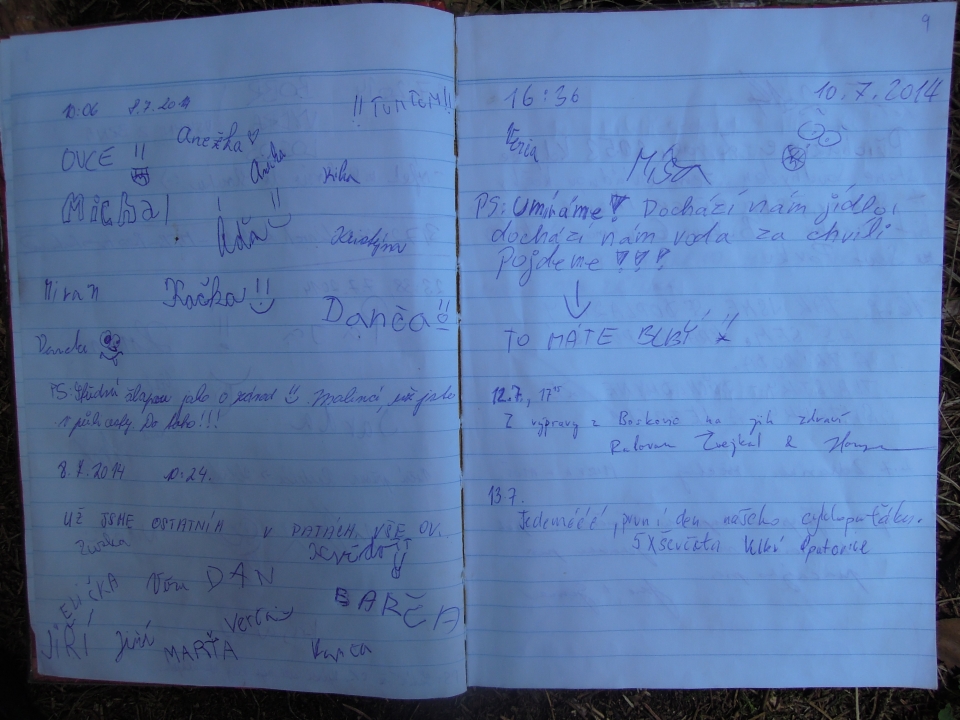 9
10:06 8.7.2014 !!TUMTUM!!
Anežka
OVCE !! Anička
Kika
Michal
Áďa
Karolýna
Miran Kačka!!
Danča!!
Danda
PS: jako o závod už jsme
v půli cesty Do toho!!!
8.7.2014 10:24.
UŽ JSME OSTATNÍM V PATÁCH, VŠE OK.
Zuzka
ELIČKA Věra DAN
BARČA
Verča
JIŘÍ Jiří MARŤA
16:36 10.7.2014
Verča
MÍŠA
PS: Umíráme! Dochází nám jídlo,
dochází nám voda za chvíli
Pojdeme !!!
TO MÁTE BLBÝ
12.7., 17 15
Z výpravy z Boskovic na jih zdraví
Ratovan Zvejkal &
13.7.
Jedemééé, první den našeho cykloputáku.
5x sešista Velké Opatovice